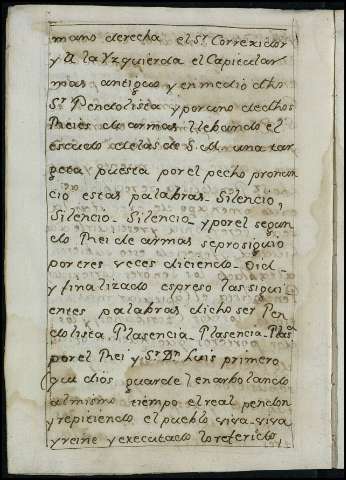 mano derecha el Sr. Correxidor
y A la Yzquierda el Capitular
mas antiguo y en medio dho
Sr. Pendolista y por uno de dhos
Rheies de armas llebando el
escudo de las de S. M. una tar
geta puesta por el pecho pronun
cio estas palabras - Silencio,
Silencio - Silencio y por el segun
do Rhei de armas se prosiguio
por tres veces diciendo - Oid -
y finalizado espreso las sigui
entes palabras dicho Ser Pen
dolista, Plasencia - Plasencia - Plasa
por el Rhei y Sr. Dn. Luis primero
que dios guarde lenarbolando
al mismo tiempo el real pendon
y repitiendo el pueblo viva - viva
y reine y executado lo referido